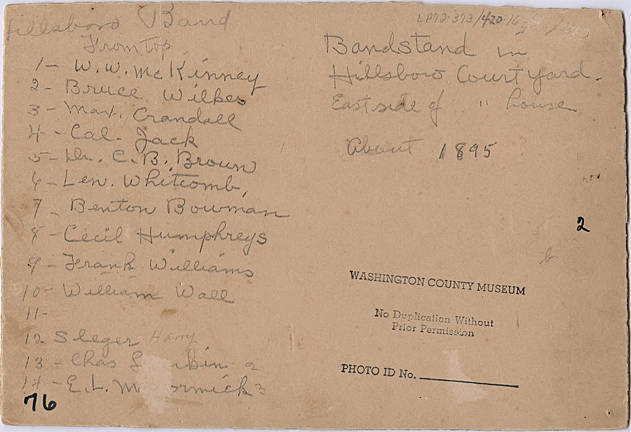 Hillsboro Band
From top
1- W. W. McKinney
2- Bruce Wilkes
3- Max. Crandall
4- Cal. Jack
5- Dr. C. B. Brown
6- Len. Whitcomb,
7- Benton Bowman
8- Cecil Humphreys
9- Frank Williams
10- William Wall
11-
12 Sleger Harry
13- Chas
14- E. L. McCormick
76
LP72-373/420-16
Bandstand in
Hillsboro Courtyard.
East side of " house
About 1895
2
WASHINGTON COUNTY MUSEUM
No Duplication Without
Prior Permission
PHOTO ID No.